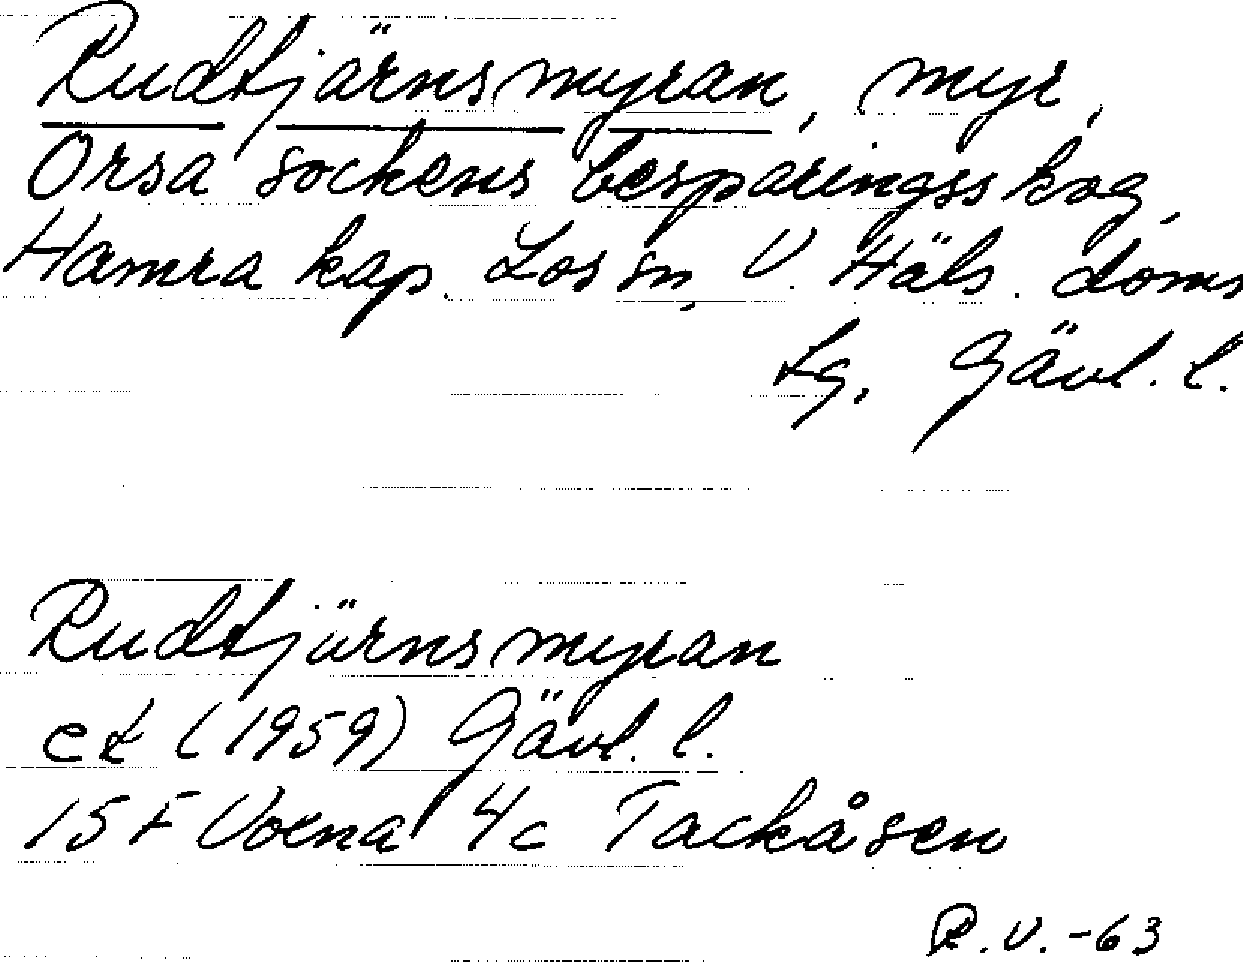 Rudtjärnsmyran, myr,
Orsa sockens besparingsskog,
Hamra kap. Los sn, V. Häls. doms
Lg, Gävl. l.
Rudtjärnsmyran
ek (1959) Gävl. l.
15 F Voxna 4c Tackåsen
R.V.-63